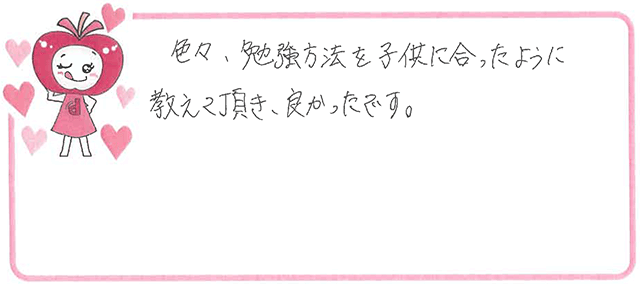 色々、勉強方法を子供に合ったように
教えて頂き、良かったです。